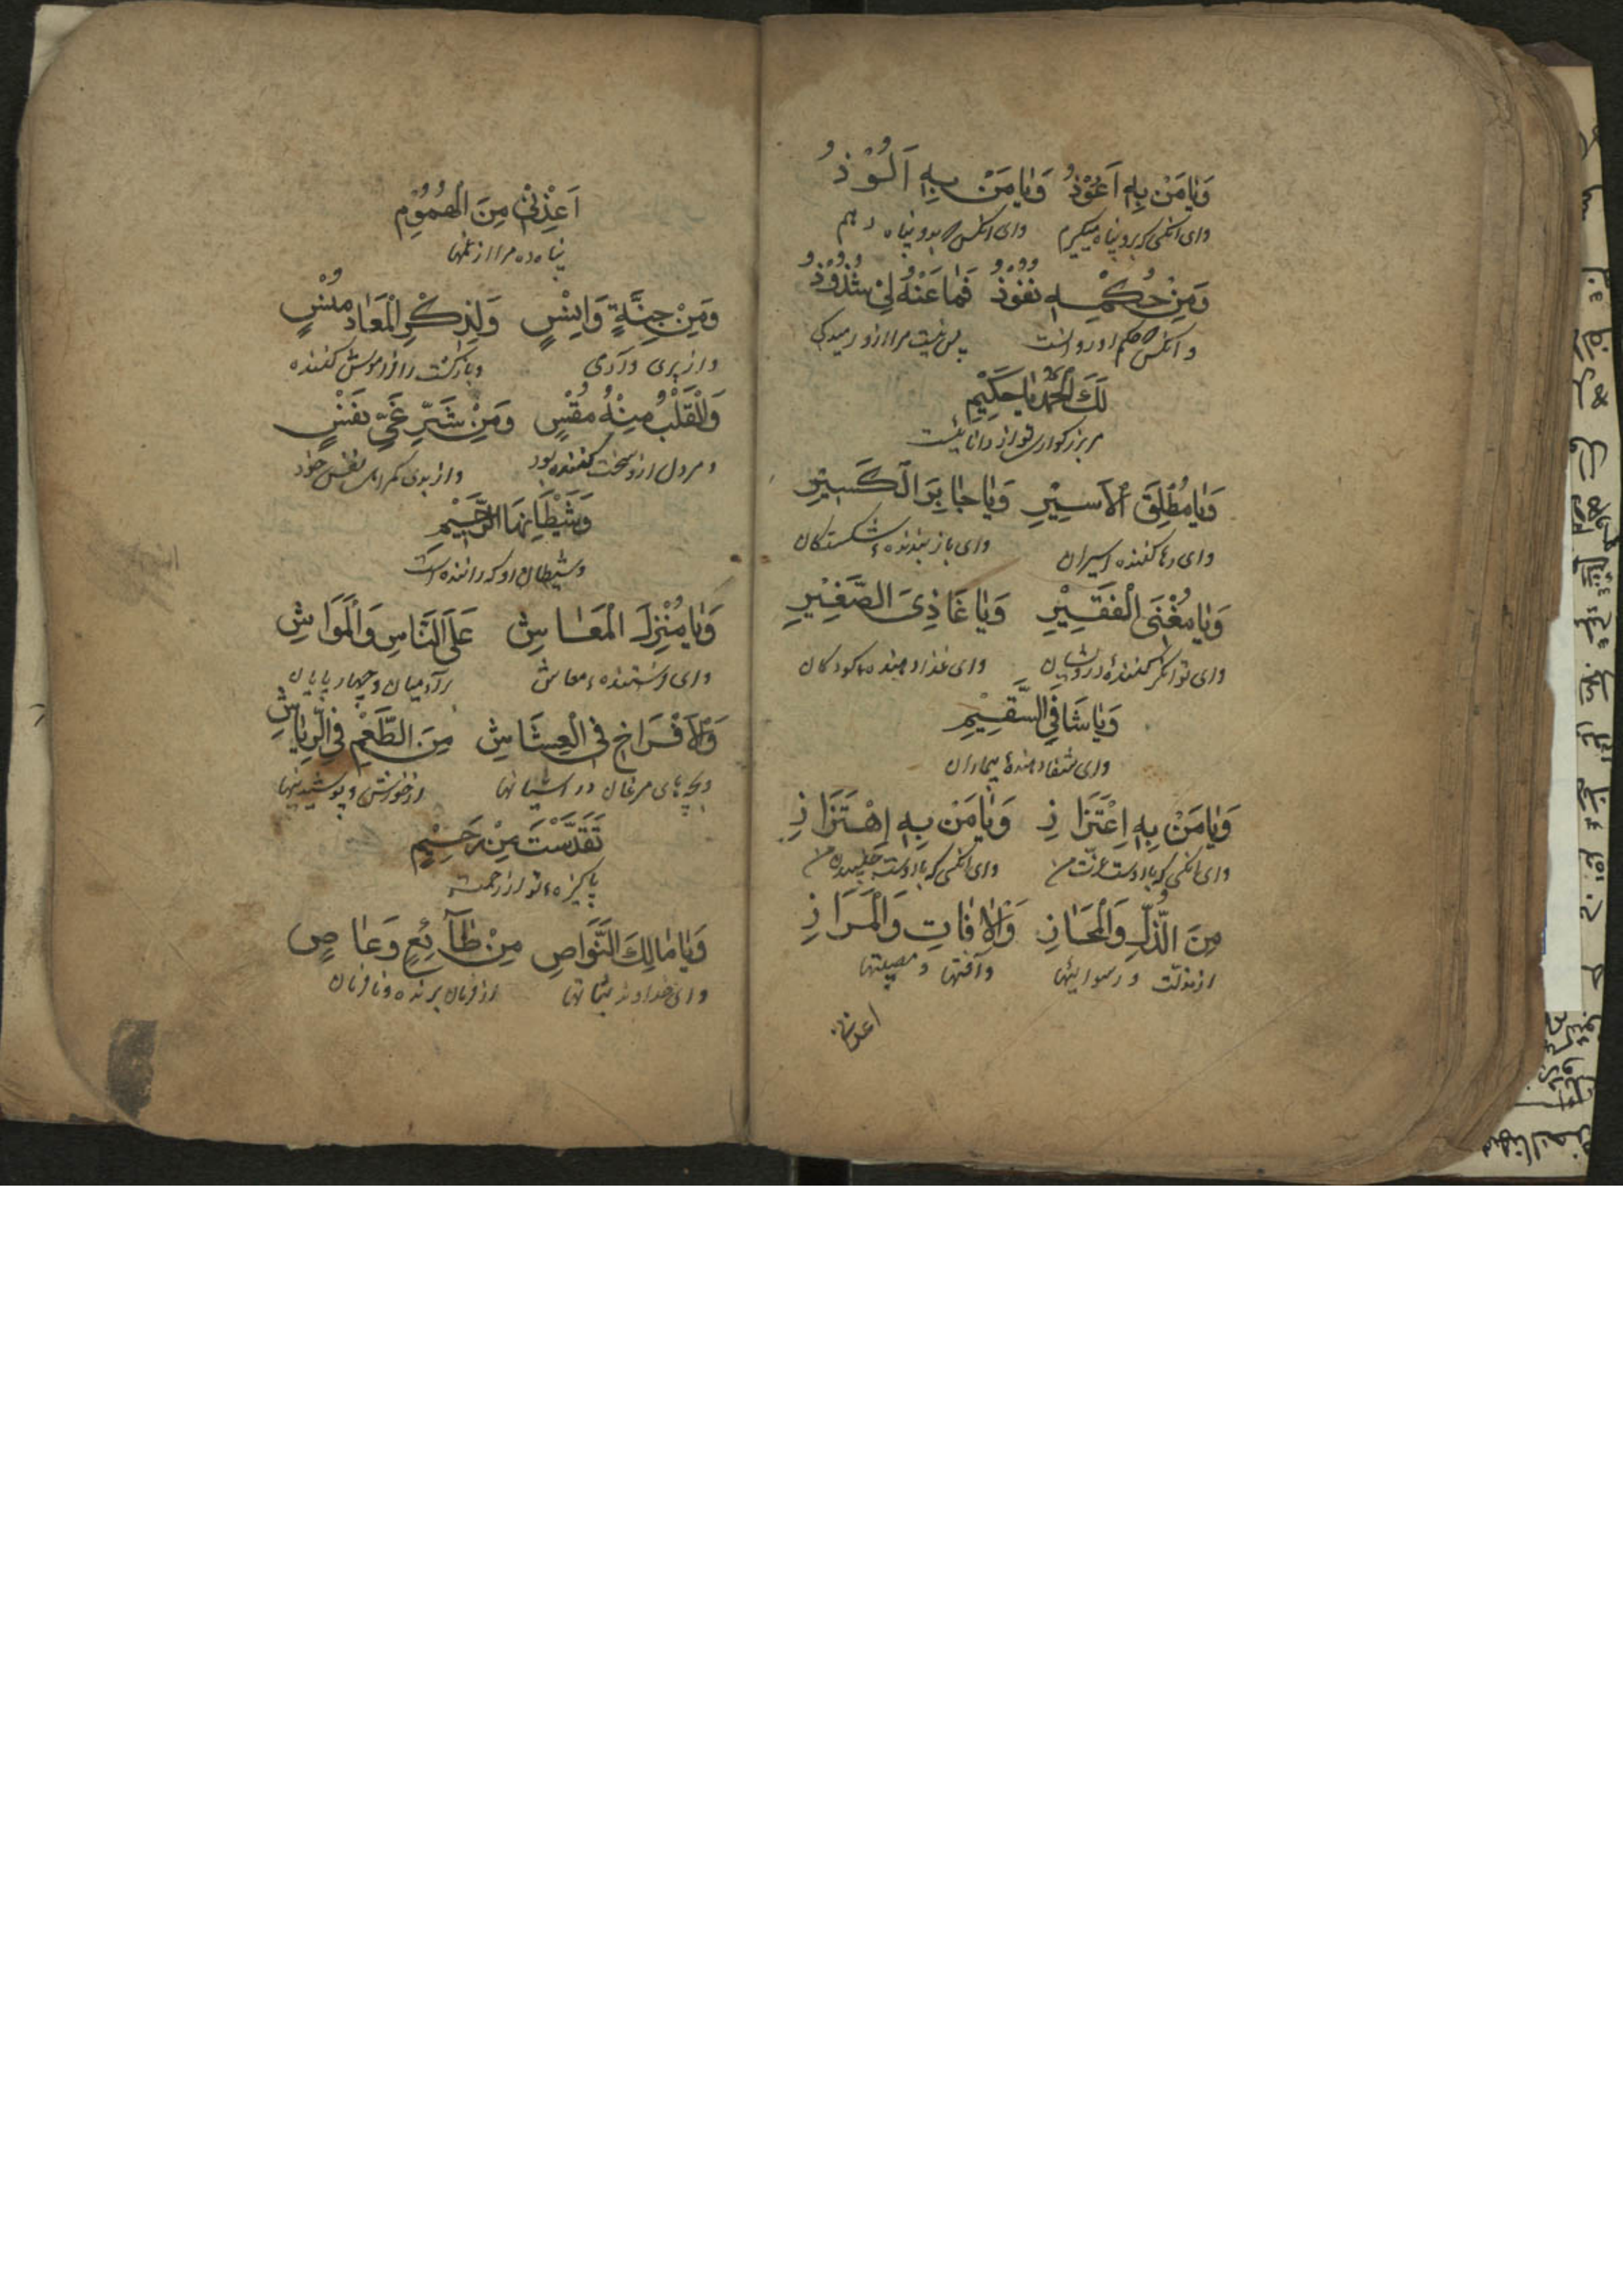 وَيٰا مَنْ بِهِ اَعُوْذُ وَيٰا مَنْ بِهِ اَلُوْذُ
وای آنکسی که برو پناه میگیرم وای انکس که بدو پناه دهم
وَمِنْ حُكْمِهِ نُفُوْذُ فَمٰا عَنْهُ لِيْ شُذُوْذُ
و انکس که حکم او رو انست پس نیست مرا از و رمیدگی
لَكَ الْحَمْدُ يٰا حَكِيْمُ
مر بزرکوار تو از دانائیست
وَيٰا مُطْلِقَ الْاَسِيْرِ وَيٰا جٰابِرَ الْكَسِيْرِ
وای رها کننده اسیران وای باز بندنده شکستکان
وَيٰا مُغْنِىَ الْفَقِيْرِ وَيٰا غَاذِىَ الصَّغِيْرِ
وای توانکر کننده درویشان وای غذا دهنده کودکان
وَيٰا شَافِيَ السَّقِيْمِ
وای شفا دهندهٔ بیماران
وَيٰا مَنْ بِهِ اِعْتَزَازِ وَيٰا مَنْ بِهِ اِهْتَزَازِ
وای انکسی که با اوست عزت من وای انکسی که با اوست جنبیدن من
مِنَ الذُّلِّ وَالْمَخَازِ وَالْاٰفٰاتِ وَالْمَرَازِ
از مذلت و رسوائیها وآفتها و مصیبتها
اعذنی
اَعِذْنِيْ مِنَ الْهُمُوْمِ
پناه ده مرا از غمها
وَمِنْ جِنَّةٍ وَاِنْسٍ وَلِذِكْرِ الْمَعَادِ مُنْسٍ
و از پری و آدمی و بازکشت را فراموش کننده
وَالْقَلْبُ مِنْهُ مُقْسٍ وَمِنْ شَرِّ غَيِّ نَفْسٍ
و مر دل از و سخت کننده بود و از بدی کمراهی نفس خود
وَشَيْطَانِهَا الرَّجِيْمِ
و شیطان او که رانده است
وَيٰا مُنْزِلَ الْمَعَاشِ عَلَى النَّاسِ وَالْمَوَاشِ
وای فرستنده معاش بر آدمیان و چهار پایان
وَالْاَفْرَاخِ فِى الْعِشَاشِ مِنَ الطَّعْمِ فِى الرِّيَاشِ
و بچه های مرغان در اشیانها از خورش و پوشیدنیها
تَقَدَّسْتَ مِنْ رَحِيْمٍ
پاکیزه تو از رحمت
وَيٰا مٰالِكَ النَّوَاصِ مِنْ طٰآئِعٍ وَعٰاصٍ
وای خداوند پیشانیها از فرمان برنده و نافرمان